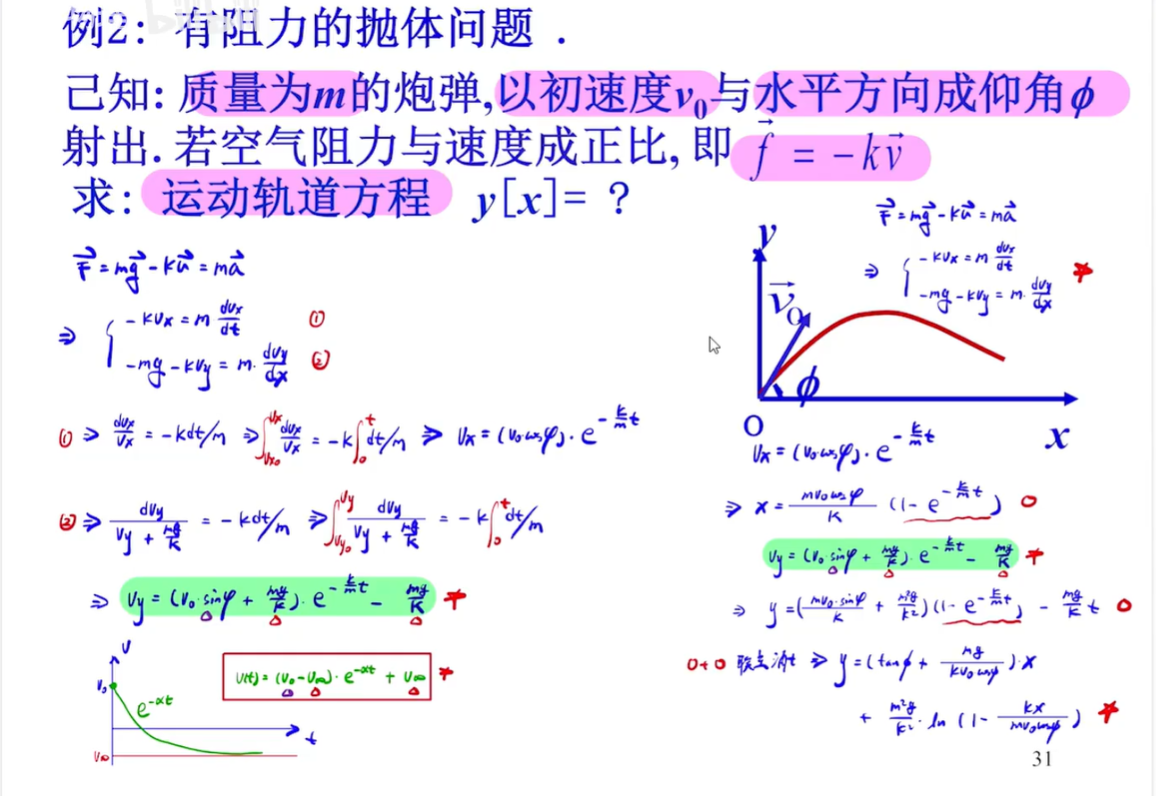 例2: 有阻力的抛体问题 .
己知: 质量为m的炮弹,以初速度v₀与水平方向成仰角ϕ
射出. 若空气阻力与速度成正比, 即 f⃗ = -kv⃗
求: 运动轨道方程 y[x]= ?
F⃗ = mg⃗ - kv⃗ = ma⃗
⇒ { -kvx = m dvx/dt ①
-mg - kvy = m· dvy/dx ②
① ⇒ dvx/vx = -kdt/m ⇒ ∫_{vx₀}^{vx} dvx/vx = -k∫₀^t dt/m ⇒ vx = (v₀cosφ)·e^{-k/m t}
② ⇒ dvy/(vy + mg/k) = -kdt/m ⇒ ∫_{vy₀}^{vy} dvy/(vy + mg/k) = -k∫₀^t dt/m
⇒ vy = (v₀·sinφ + mg/k)·e^{-k/m t} - mg/k
v
v₀
e^{-αt}
t
v∞
v(t) = (v₀ - v∞)·e^{-αt} + v∞
F⃗ = mg⃗ - kv⃗ = ma⃗
⇒ { -kvx = m dvx/dt
-mg - kvy = m· dvy/dx
y
v⃗₀
ϕ
O
x
vx = (v₀cosφ)·e^{-k/m t}
⇒ x = mv₀cosφ/k (1 - e^{-k/m t})
vy = (v₀sinφ + mg/k)·e^{-k/m t} - mg/k
⇒ y = (mv₀·sinφ/k + m²g/k²)(1 - e^{-k/m t}) - mg/k t
0+0 联立消t ⇒ y = (tanϕ + mg/(kv₀cosϕ))·x
+ m²g/k² · ln(1 - kx/(mv₀cosϕ))
31